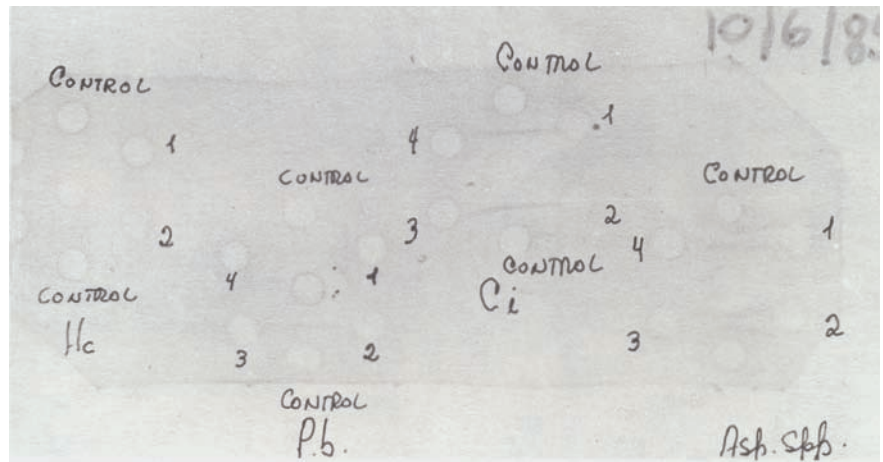 10/6/8
CONTROL
CONTROL
1
4
1
CONTROL
CONTROL
2
3
2
1
4
4
1
CONTROL
CONTROL
Hc
Ci
3
2
3
2
CONTROL
P.b.
Asp. spp.